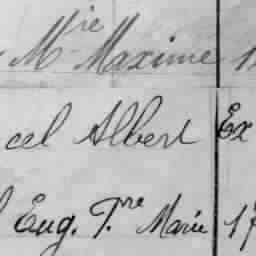 Mre Maxime
cel Albert Ex
Eug. T.re Marie 17